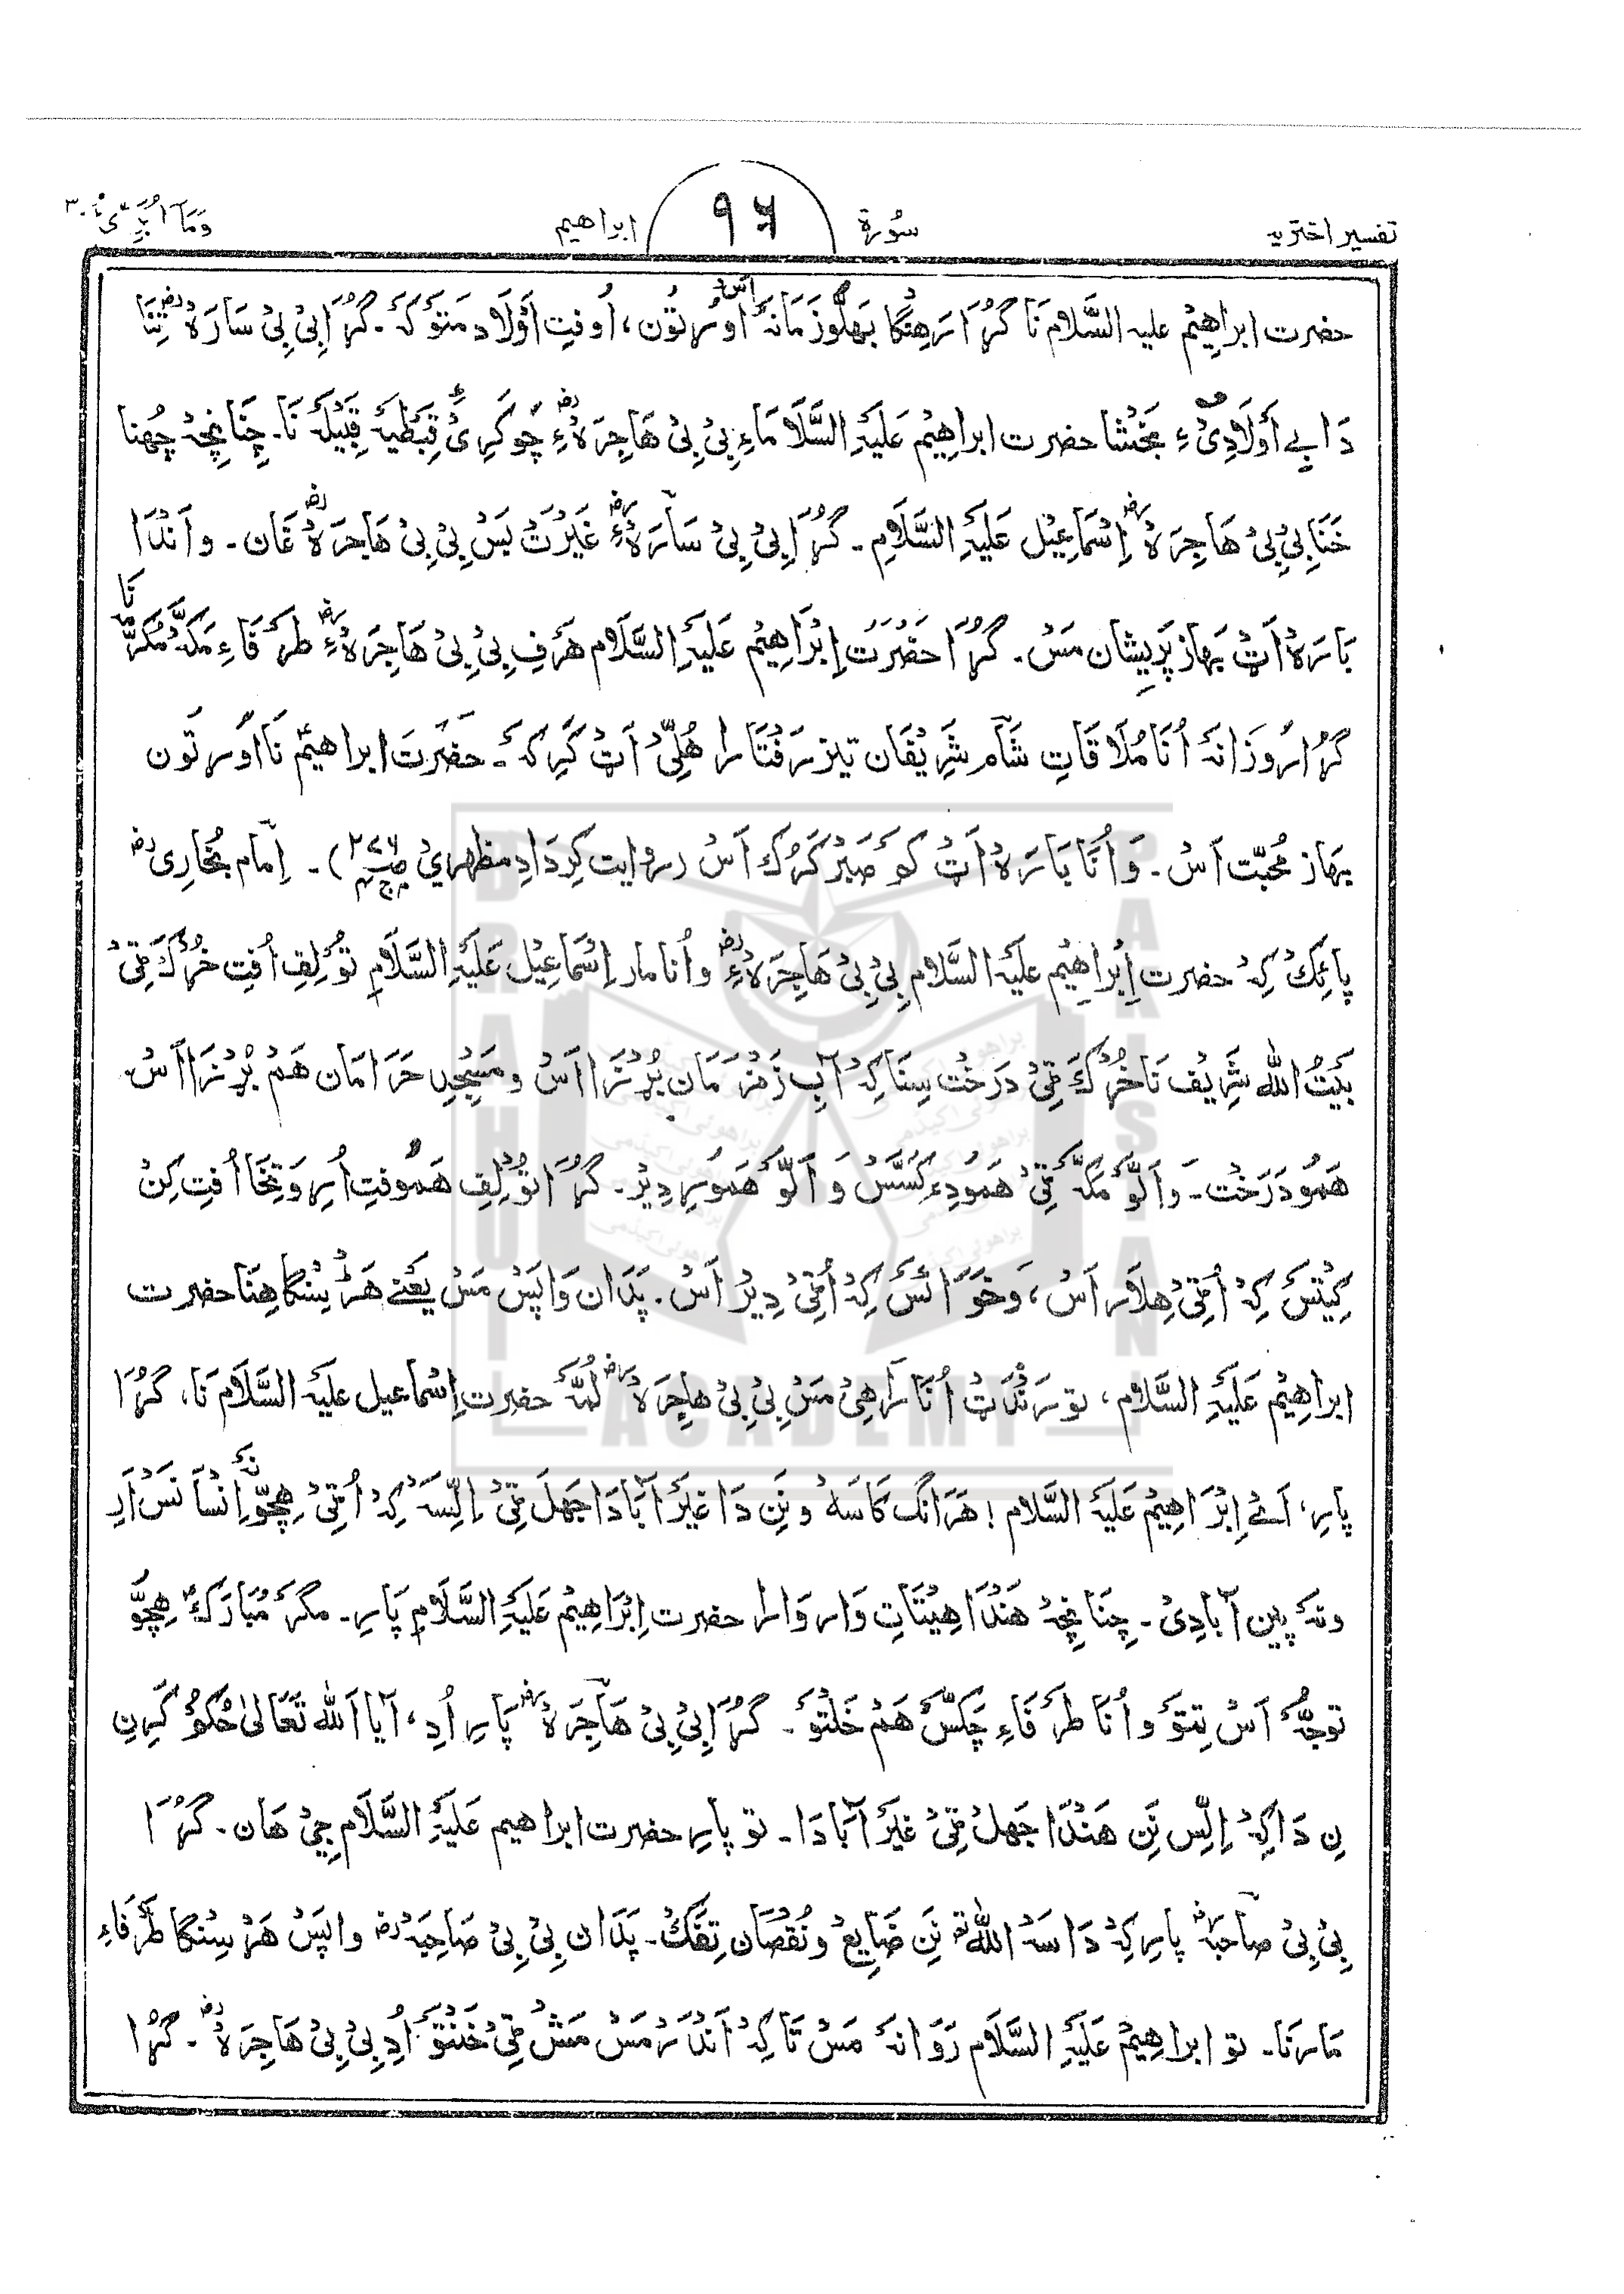 تفسیر اختریہ
سُورۃ
۹۶
ابراھیم
وَمَآ اُبَرِّیُٔ ۳۰
حضرت ابراھِیْم علیہ السَّلام نَا گُڑَا رَھِنْگَا بَھلُّو زَمَانَہ اَسْ اُوْرتُون، اُوفتِ اَوْلَاد مَتَوَکَہ۔ گُڑَا بِیْ بِیْ سَارَہْؓ تِنَا
دَا بے اَوْلَادِیْ ءِ بَخْشَا حضرت ابراھِیْم عَلَیْہِ السَّلَامَاءِ بِیْ بِیْ ھَاجِرَہْؓءِ چَوکَرِیْ ءِ قِبْطِیَہ قَبِیْلَہ نَا۔ چِنَانچِہْ چُھنا
خَنَا بِیْ بِیْ ھَاجِرَہْؓ اِسْمَاعِیْل عَلَیْہِ السَّلَامِ۔ گُڑَا بِیْ بِیْ سَارَہْؓءِ غَیْرَتْ بَسْ بِیْ بِیْ ھَاجِرَہْؓ غَان۔ و اَنْدَا
بَارَہْ اَٹْ بَھاز پَرِیشان مَسْ۔ گُڑَا حَضْرَتِ اِبْرَاھِیْم عَلَیْہِ السَّلام ھَرَفِ بِیْ بِیْ ھَاجِرَہْؓءِ طَرَفَاءِ مَکَّہْ مُکَرَّمہ نَا
گُڑا رُوزَانَہ اُنَا مُلَاقَاتِ شَام شَرِیْفَان تیز رَفْتَارا ھُلِّیْ اَٹْ کَرِکَہ۔ حَضْرَت ابراھیمؑ نَا اُوْرتُون
بَھاز مُحَبَّت اَسْ۔ وَ اُنَا بَارَہْ اَٹْ کم صَبْر کَرُک اَسْ (رِوایت کِرِدَادِ مظھریؒ ص۲۷۶ ج۴)۔ اِمَام بُخَارِیؒ
پائِکْ کِہْ حضرت اِبْرَاھِیْم عَلَیْہِ السَّلَام بِیْ بِیْ ھَاجِرَہْؓءِ و اُنا مار اِسْمَاعِیْل عَلَیْہِ السَّلَامِ تُولِفِ اُفتِ خُڑُکَ ٹِیْ
بَیْتُ اللہ شَرِیْف نَا خُڑُکَ ٹِیْ دَرَخْت سِنَا کِہْ آبِ زَمْزَمَان بُرْزَا اَسْ و مَسْجِدِ حَرَامَان ھَمْ بُرْزَا اَسْ۔
ھَمُو دَرَخْت۔ وَ اَلَّوْ مَکَّہ ٹِیْ ھَمُودِءِ کَسَّسْ وَ اَلَّوْ ھَمُوْرِ دِیْرْ۔ گُڑَا تُولِفِ ھَمُوفتِ اُرِ وَ تِخَا اُفتِ کِنْ
کِیْتَسَ کِہْ اُٹِیْ ھِلَار اَسْ، وَ خَوَائَسْ کِہْ اُٹِیْ دِیْرْ اَسْ۔ پَدَان وَاپَسْ مَسْ یَعْنے ھَڑْسِنگا ھِنَا حضرت
ابراھِیْم عَلَیْہِ السَّلام، تو رَنْدَٹْ اُنَا رَاھِیْ مَسْ بِیْ بِیْ ھاجِرَہْؓ لُمَّہ حضرت اِسْمَاعیل عَلَیْہِ السَّلَام نَا، گُڑَا
پارِ، اَے اِبْرَاھِیْم عَلَیْہِ السَّلام! ھَرَانگ کَاسَہْ و نَنِ دَا غَیْرَ آبَادَا جَھل ٹِیْ اِلِّیسَہ کِہْ اُٹِیْ ھِچّو اِنْسَانَسْ اَرِ
ونَہ پین آبادِیْ۔ چِنَانچِہْ ھَنْدَا ھِیْتَاتِ وَار وَارا حضرت اِبْرَاھِیْم عَلَیْہِ السَّلَامِ پَارِ۔ مگر مُبَارَک ھِچّو
توجُّہ اَسْ تِتَوَ و اُنَا طَرَفَاءِ چَکَّسْ ھَمْ خَلْتَوْ۔ گُڑَا بِیْ بِیْ ھَاجِرَہْؓ پَارِ اُدِ، آیَا اَللہ تَعَالیٰ حُکم کَرِنِ
نِ دَاکِہْ اِلِّس نَنِ ھَنْدَا جَھل ٹِیْ غَیْرَ آبَادَا۔ تو پارِ حضرت ابراھیم عَلَیْہِ السَّلَام جِیْ ھَان۔ گُڑَا
بِیْ بِیْ صَاحبہؓ پارِ کِہْ دَاسَہْ اللہ نَنِ ضَایِعْ و نُقْصَان تِفَکْ۔ پَدَان بِیْ بِیْ صَاحِبَہْؓ واپَسْ ھَڑْسِنگا طَرَفَاءِ
مَارنَا۔ تو ابراھِیْم عَلَیْہِ السَّلام رَوَانَہ مَسْ تَاکِہْ اَنْدَرْ مَسْ مَشْ ٹِیْ خَنْتَوْ اُدِ بِیْ بِیْ ھَاجِرَہْؓ۔ گُڑا
BRAHUI
ACADEMY
PAKISTAN